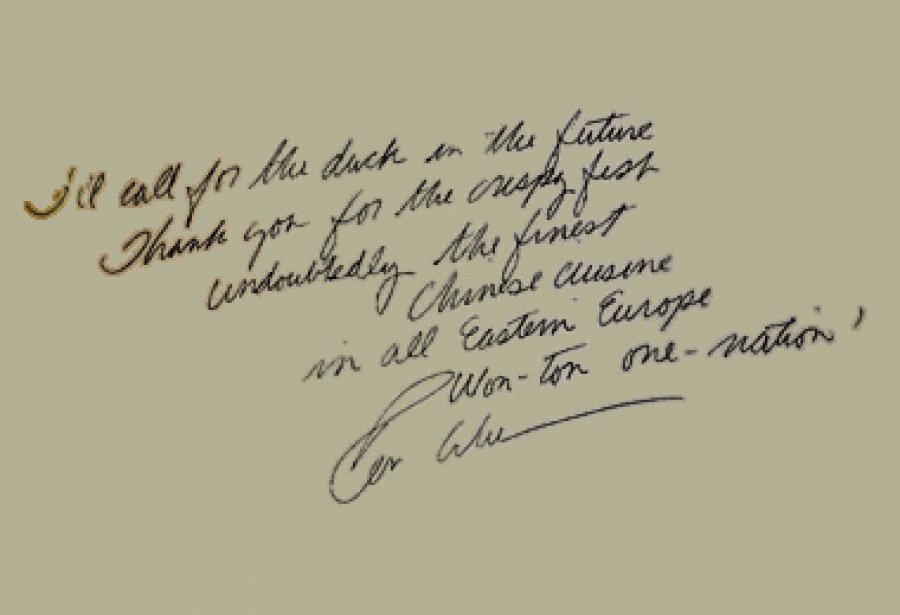 I'll call for the duck in the future
Thank you for the crispy fish
undoubtedly the finest
Chinese cuisine
in all Eastern Europe
Won-ton one-nation!